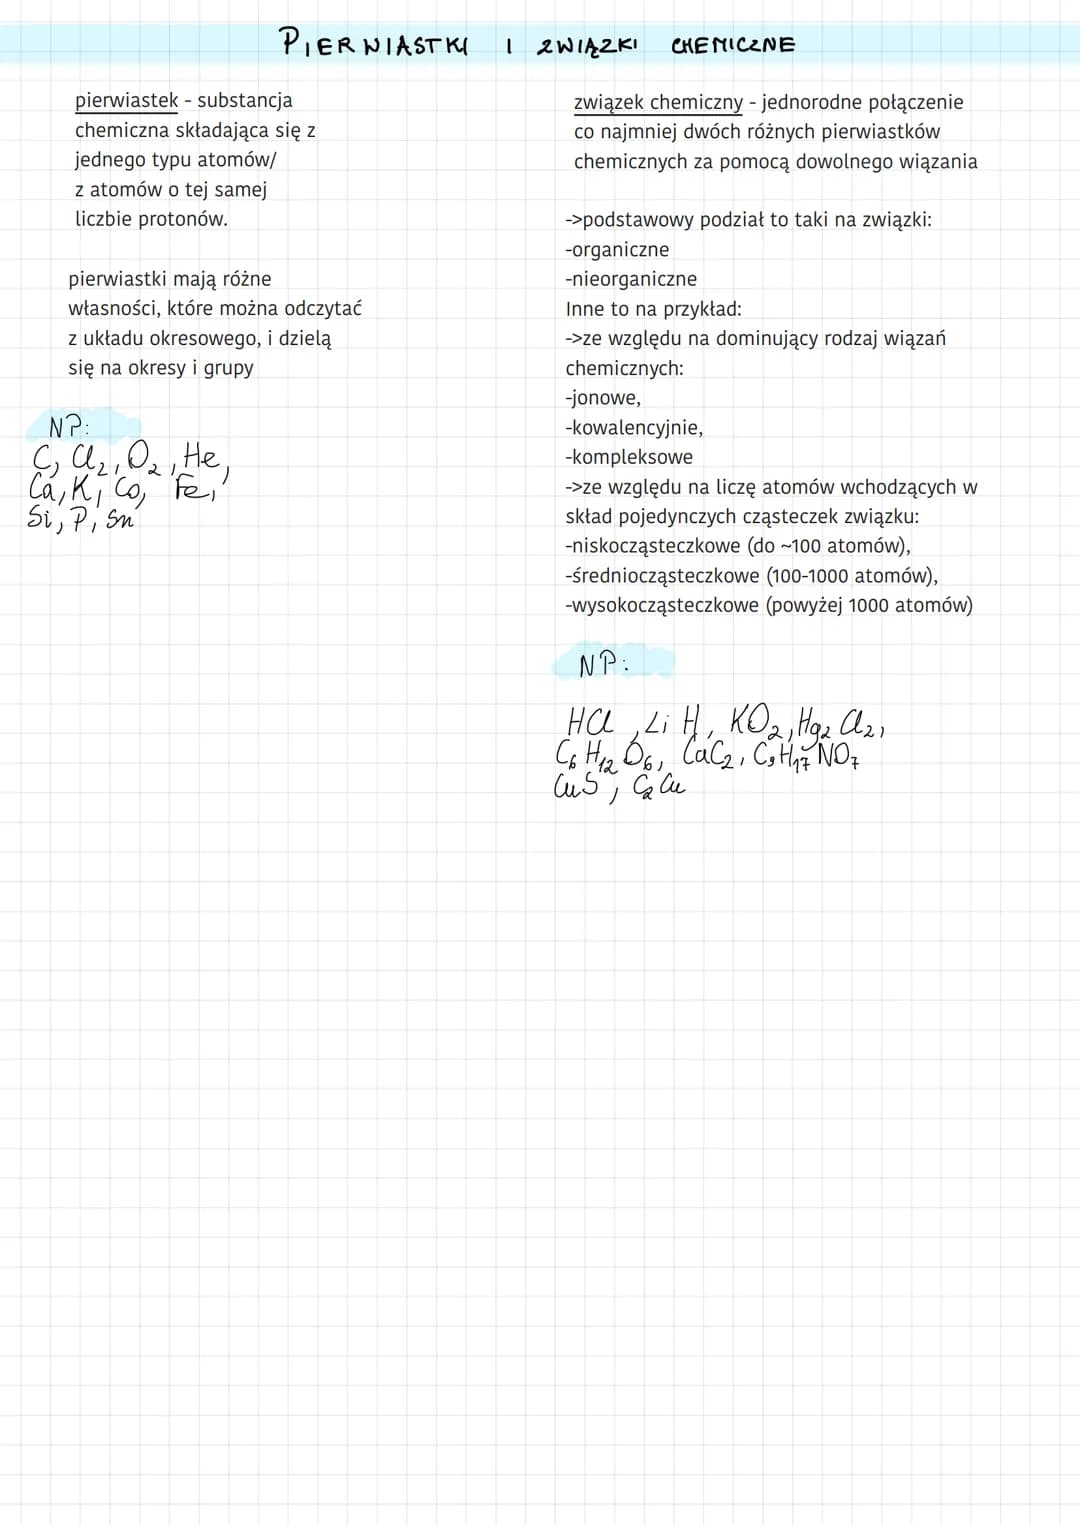 PIERWIASTKI I ZWIĄZKI CHEMICZNE
pierwiastek - substancja
chemiczna składająca się z
jednego typu atomów/
z atomów o tej samej
liczbie protonów.
pierwiastki mają różne
własności, które można odczytać
z układu okresowego, i dzielą
się na okresy i grupy
NP:
C, Cl₂, O₂, He,
Ca, K, Co, Fe,
Si, P, Sn
związek chemiczny - jednorodne połączenie
co najmniej dwóch różnych pierwiastków
chemicznych za pomocą dowolnego wiązania
->podstawowy podział to taki na związki:
-organiczne
-nieorganiczne
Inne to na przykład:
->ze względu na dominujący rodzaj wiązań
chemicznych:
-jonowe,
-kowalencyjnie,
-kompleksowe
->ze względu na liczę atomów wchodzących w
skład pojedynczych cząsteczek związku:
-niskocząsteczkowe (do ~100 atomów),
-średniocząsteczkowe (100-1000 atomów),
-wysokocząsteczkowe (powyżej 1000 atomów)
NP:
HCl, LiH, KO₂, Hg₂Cl₂,
C₆H₁₂O₆, CaC₂, C₉H₁₇NO₇
CuS, C₂Cu